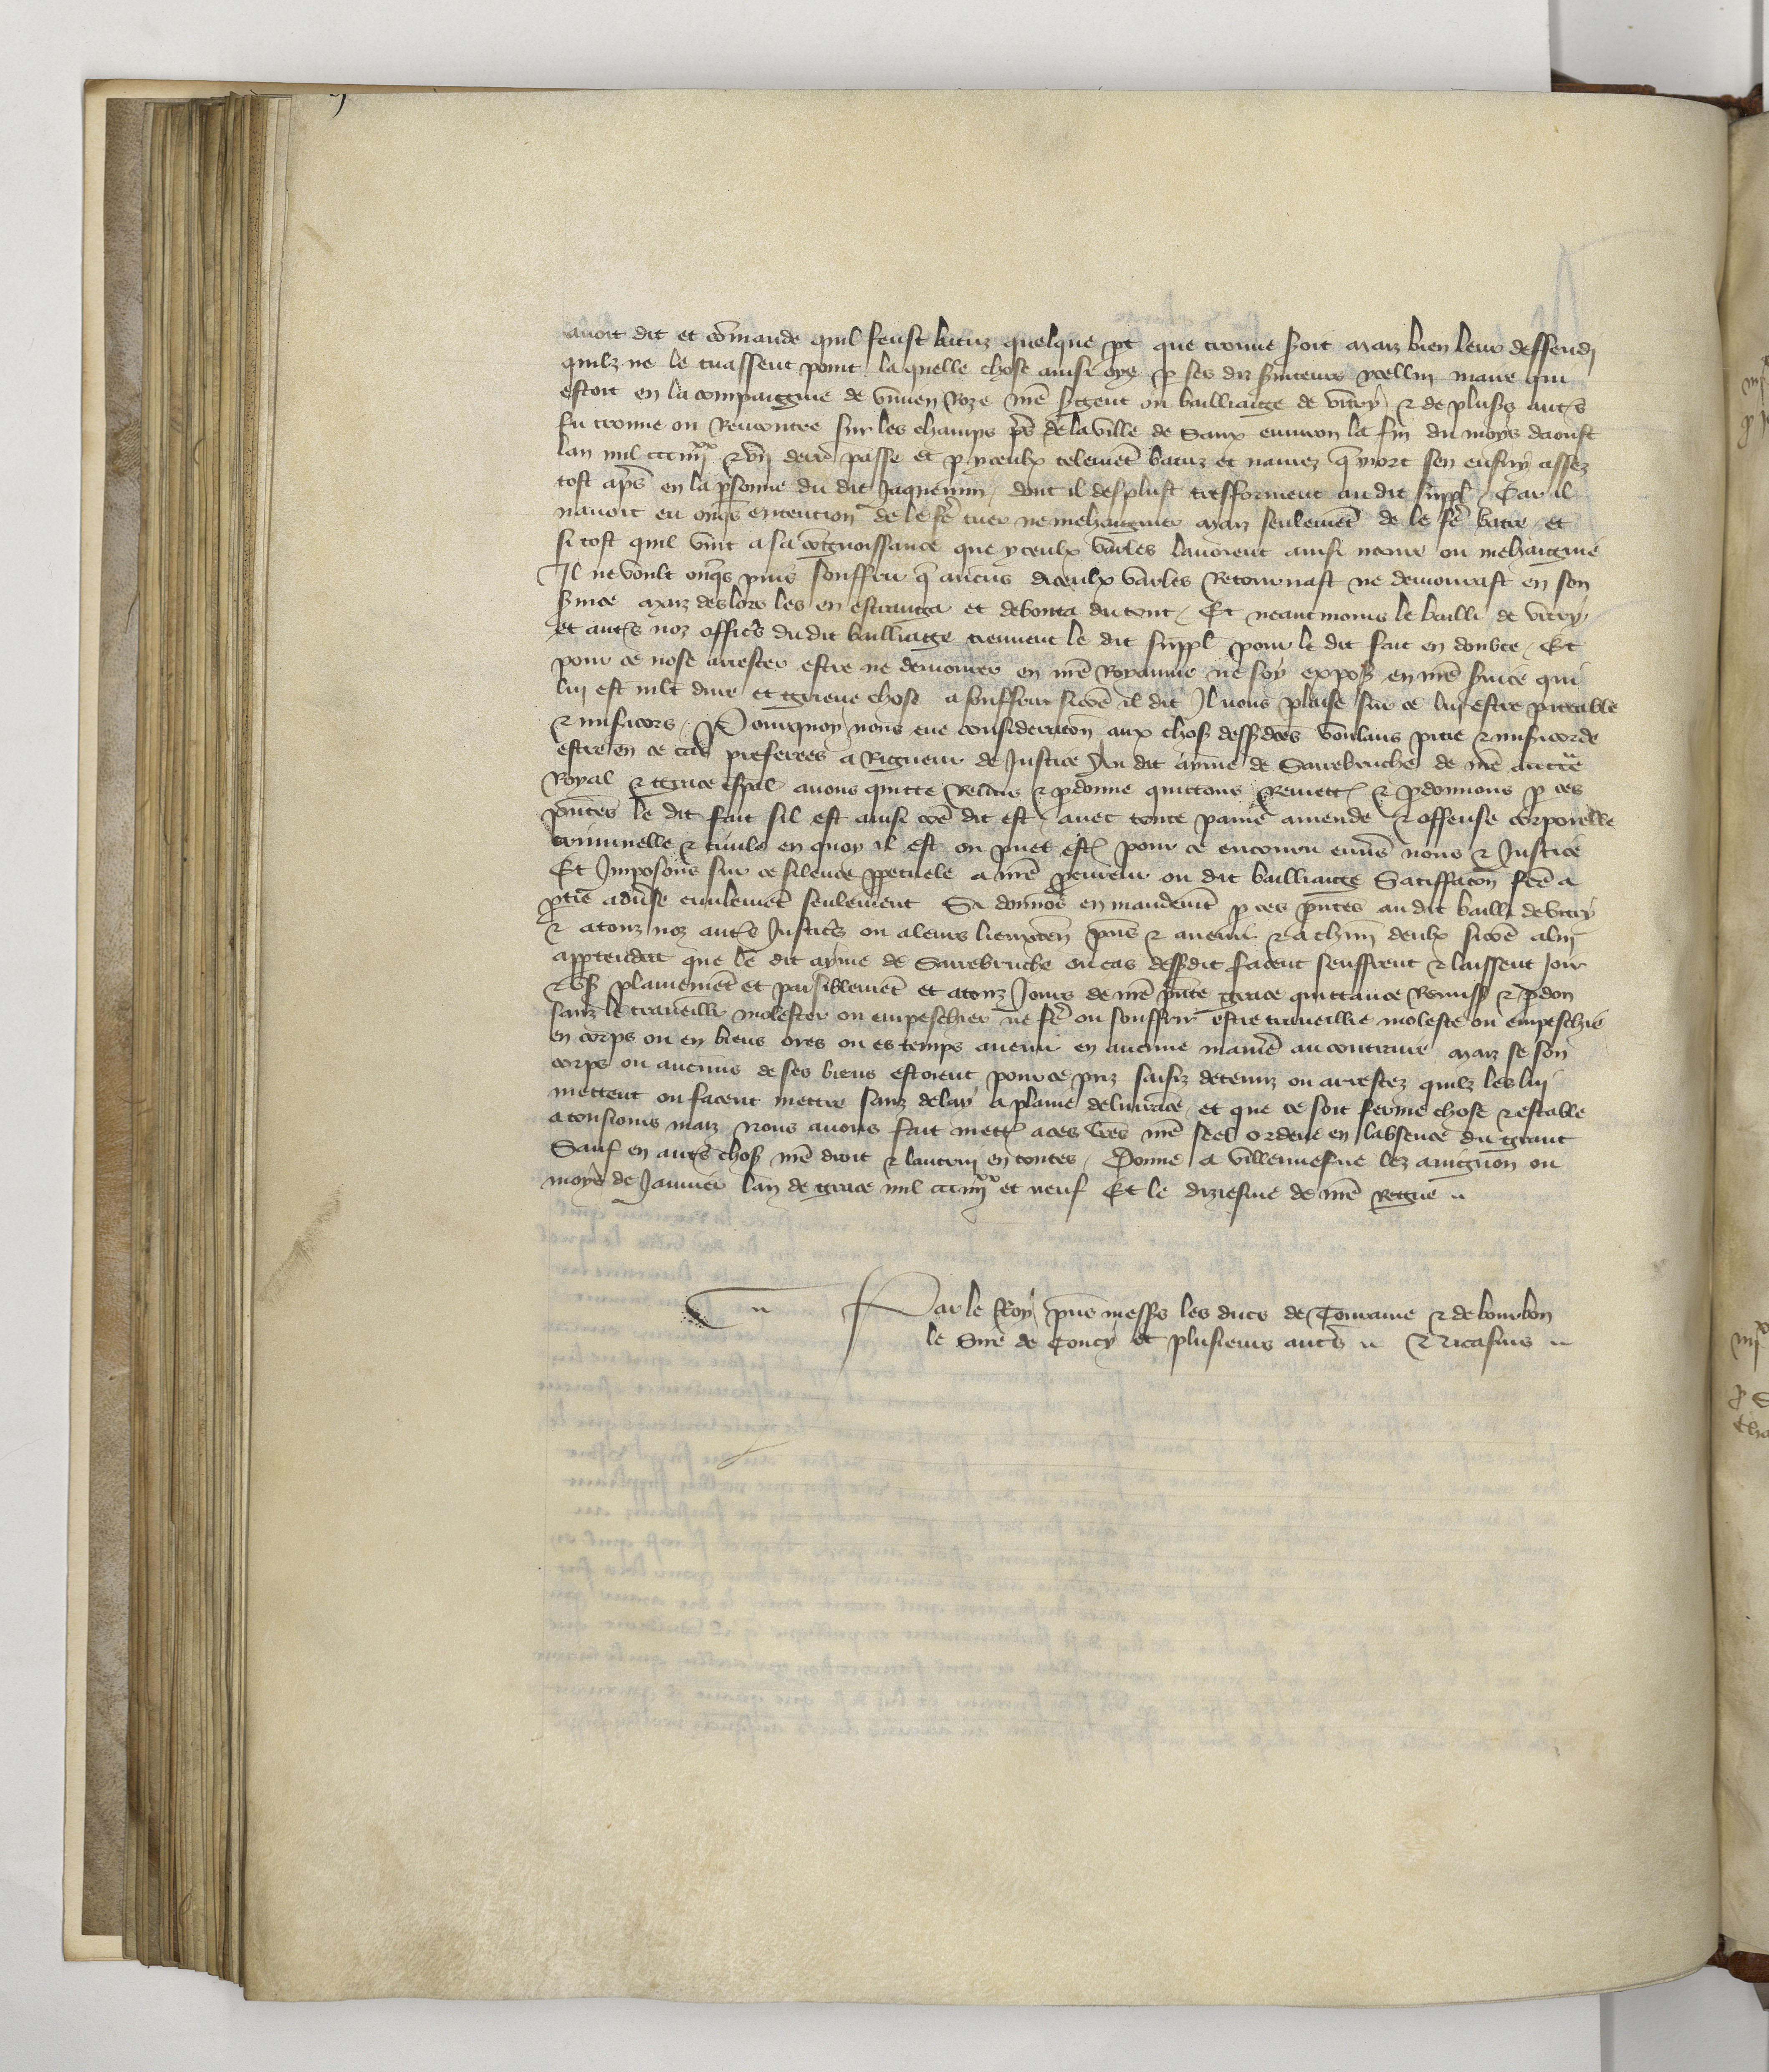 auoit dit et cõmande quil feust batuz quelque pt que trouue soit maiz bien leur deffendi
quilz ne le tuassent point la quelle chose ainsi oye p ses diz s̃uiteurs ycellui maire qui
estoit en la compaignie de v̄mien Roze nr̃e s̃gent ou bailliaige de vitry ⁊ de plus̃s aut̃s
fu trouue ou Rencontre sur les champs p̃s de la ville de Saux enuiron la fin du moys daoust
lan mil ccciiij^xx ⁊ vij derr̃ passe et p yceulx telemẽt batuz et naurez q̃ mort sen ensuy assez
tost ap̃s en la p̃sonne du dit Jaquemin / dont il desplust tresforment au dit suppl̃ / Car il
nauoit eu onq̃s entention de le fẽ tuer ne mehaignier maiz seulemẽt de le fẽ batre / et
si tost quil vint a sa cõgnoissance que yceulx varles lauoient ainsi naure ou mehaignie
Il ne voult onq̃s puis souffrir q̃ aucũs diceulx varles Retournast ne demourast en son
s̃uice maiz deslors les en estranga et debouta du tout / Et neantmoins le bailli de vitry
et aut̃s noz offic̃s du dit bailliaige tiennent le dit suppl̃ pour le dit fait en doubte / Et
pour ce nose arrester estre ne demourer en nr̃e Royaume ne soy exposẽ en nr̃e s̃uice qui
lui est ml̃t dure et grieue chose a souffrir sicõe il dit Il nous plaise sur ce lui estre piteable
⁊ mis̃icors / Pourquoy nous eue consideracõn aux chos̃ dess̃dces voulans pitie ⁊ mis̃icorde
estre en ce cas preferees a Rigueur de Justice Au dit ayme de Sarrebruche de nr̃e auctte
Royal ⁊ grace esp̃al auons quitte Remis ⁊ p̃donne quittons Remett̃ ⁊ p̃donnons p ces
p̃ntes le dit fait sil est ainsi cõe dit est / auec toute paine amende ⁊ offense corporelle
criminelle ⁊ ciuile en quoy il est ou puet est̃ pour ce encouru enu̾s nous ⁊ Justice
Et Imposons sur ce silence p̃petuele a nr̃e p̃cureur ou dit bailliaige Satiffacõn fc̃e a
p̃tie adu̾se ciuilemẽt seulement Si donnõs en mandemẽt p ces p̃ntes au dit bailli de vitry
⁊ a touz noz aut̃s Justic̃s ou a leurs lieuxteñ p̃ns ⁊ auenir ⁊ a chũn deulx sicõe a lui
app̃tendra que le dit ayme de Sarrebruche ou cas dess̃dit facent seuffrent ⁊ laissent Joir
⁊ vs̃ plainemẽt et paisiblemẽt et a touz Jours de nr̃e p̃nte grace quittance Remiss̃ ⁊ p̃don
sanz le traueillr̃ molester ou empeschier ne fẽ ou souffrir estre traueillie moleste ou empeschie
en corps ou en biens ores ou es temps auenir en aucune manie au contraire maiz se son
corps ou aucuns de ses biens estoient pour ce priz saisiz detenuz ou arrestez quilz les lui
mettent ou facent mettre sanz delay a plaine deliurãce / et que ce soit ferme chose ⁊ estable
a tousiours maiz Nous auons fait mett̃ a ces lr̃es nr̃e seel ordene en labsence du grant
Sauf en aut̃s chos̃ nr̃e droit ⁊ lautrui en toutes / Donne a villeneufue lez auignon ou
moys de Januier lan de grace mil ccciiij^xx et neuf Et le diziesme de nr̃e Regne
Par le Roy p̃ns mess̃s les ducs de Touraine ⁊ de bourbon
le Sire de Coucy et plusieurs aut̃s